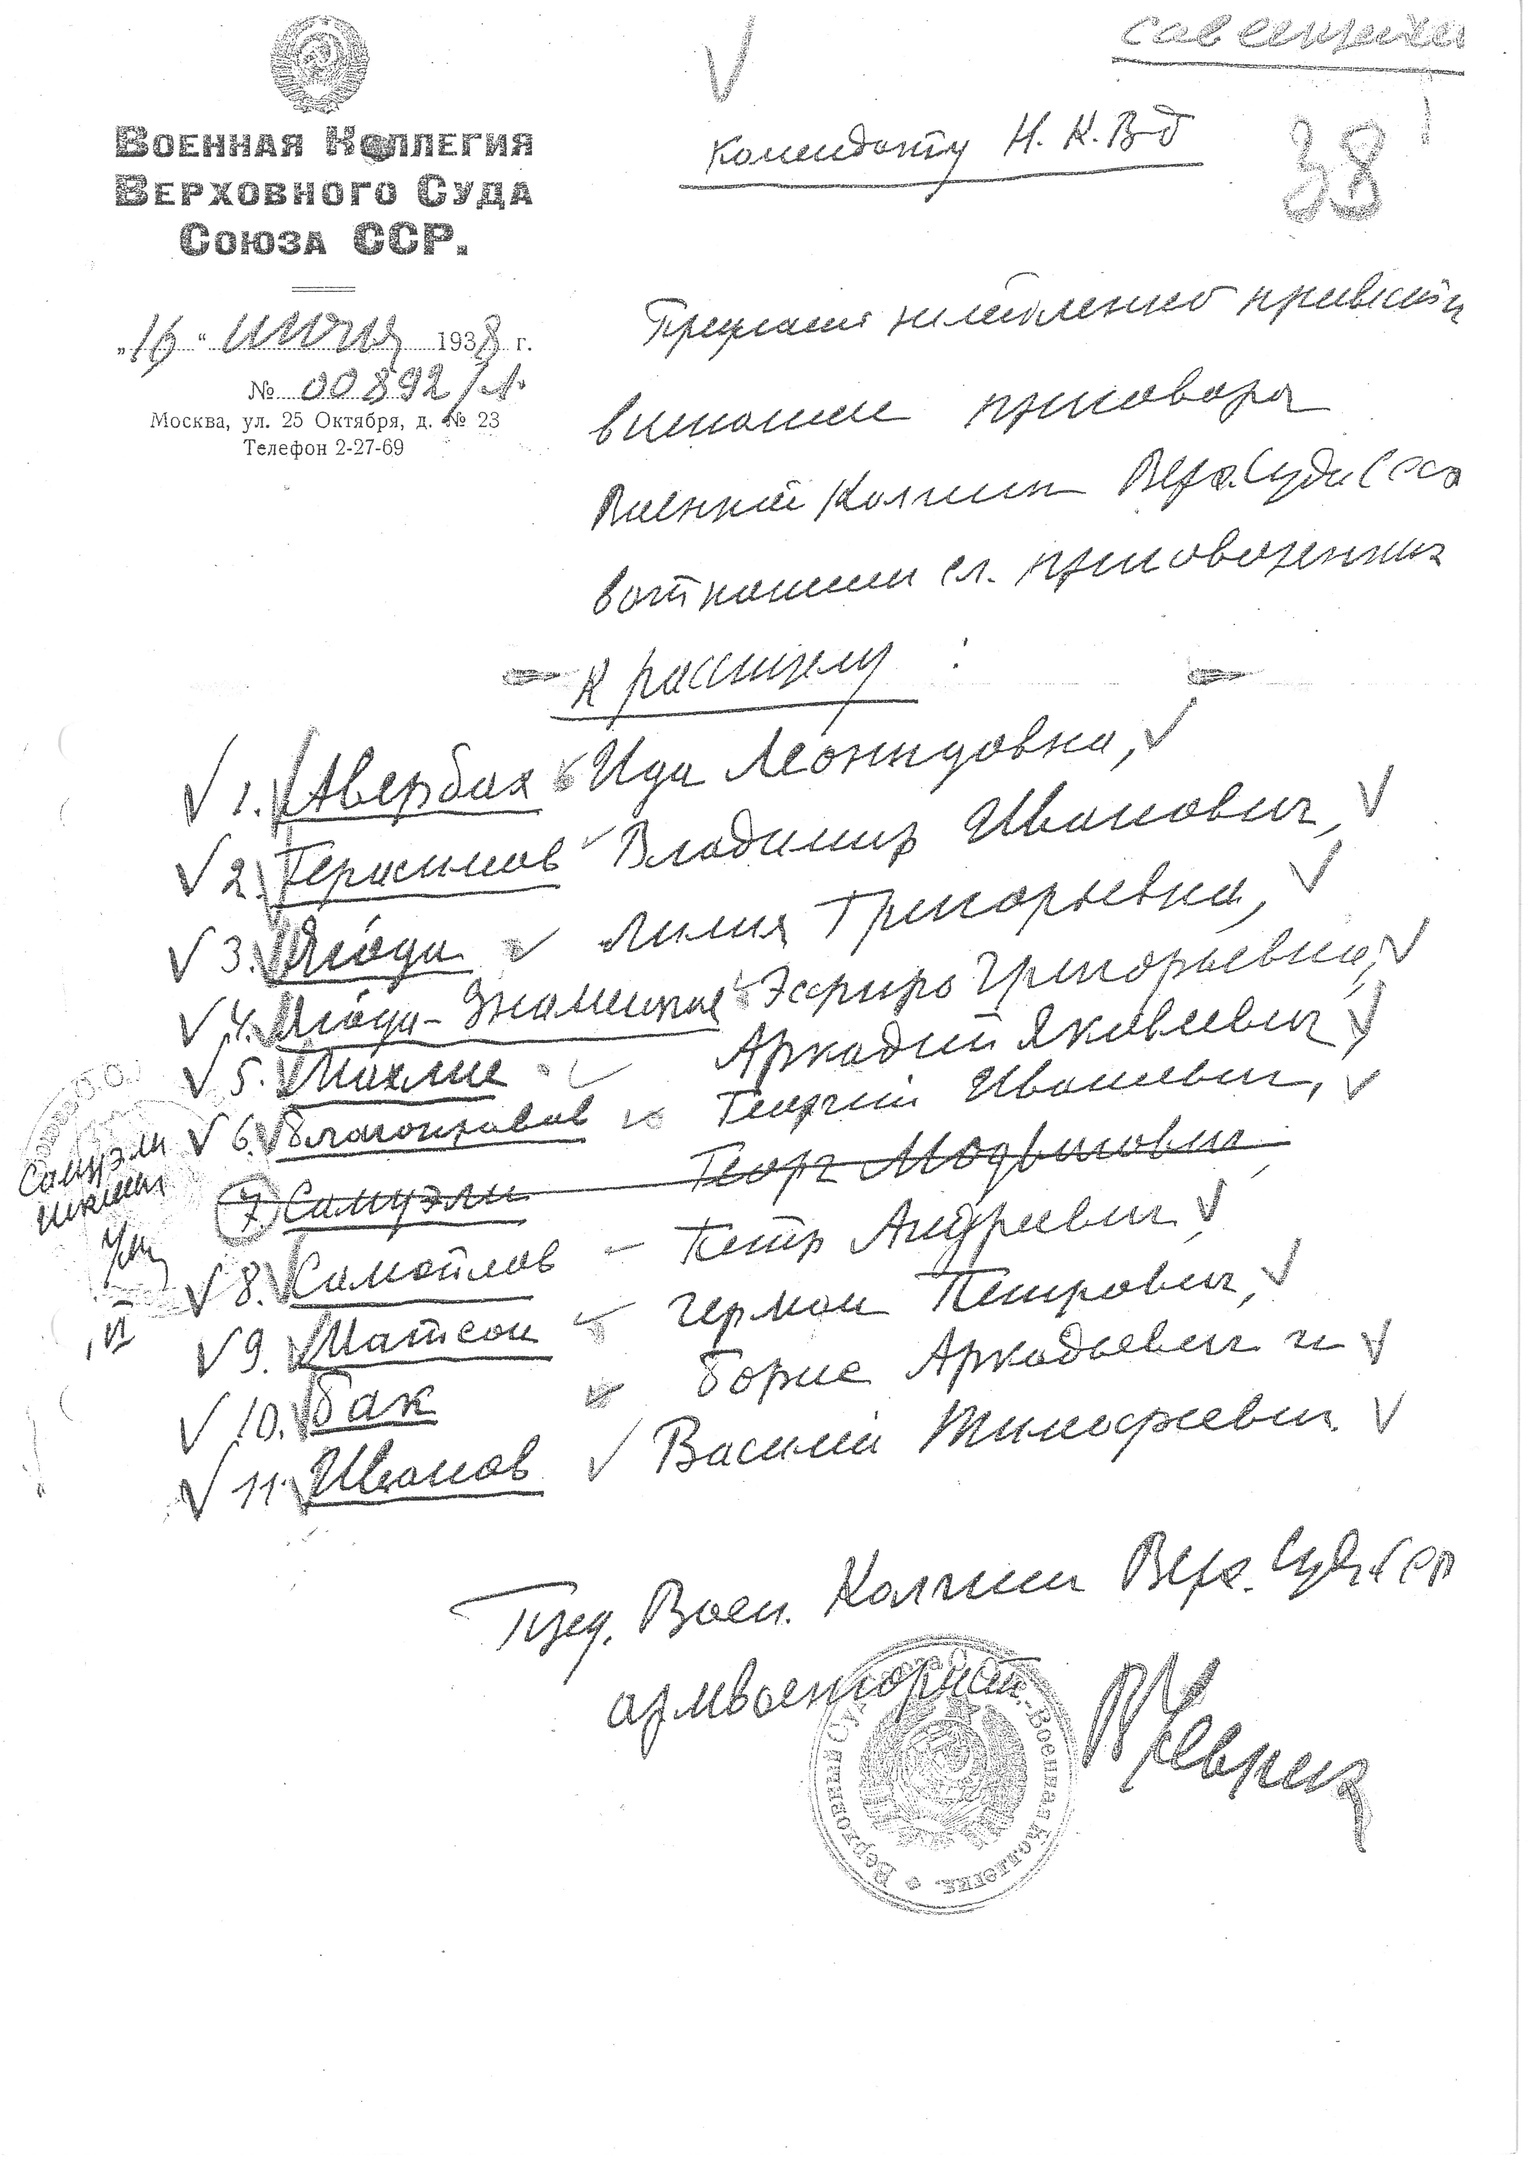 Военная Коллегия
Верховного Суда
Союза ССР.
„16“ июня 1938 г.
№ 00892/
Москва, ул. 25 Октября, д. № 23
Телефон 2-27-69
38
Комендату Н.К.Вд
Предлагаю немедленно привести
в исполнение приговора
Военной Коллегии Верх. Суда СССР
в отношении сл. приговоренных
к расстрелу :
1. Авербах Ида Леонидовна,
2. Герасимов Владимир Иванович,
3. Ягода Лилия Григорьевна,
4. Ягода-Знаменская Эсфирь Григорьевна,
5. Аркадий Яковлевич,
6. Благонравов Георгий Иванович,
7 Самуэли Георг
8. Самойлов – Петр Андреевич
9. Матсон Герман Петрович,
10. Бак Борис Аркадьевич и
11. Иванов Василий Тимофеевич.
Самуэли
исключ
VI
Пред. Воен. Коллегии Верх. Суда СССР
армвоенюрист
Верховный Суд Союза С.С.Р.-Военная Коллегия.